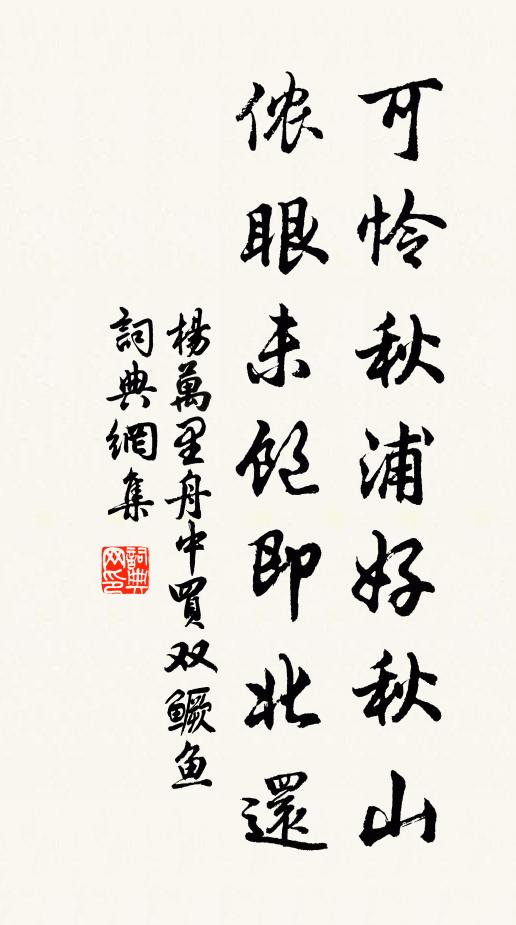 可怜秋浦好秋山
侬眼未饱即北還
楊萬里舟中買双鳜鱼
詞典網集
詞典网印